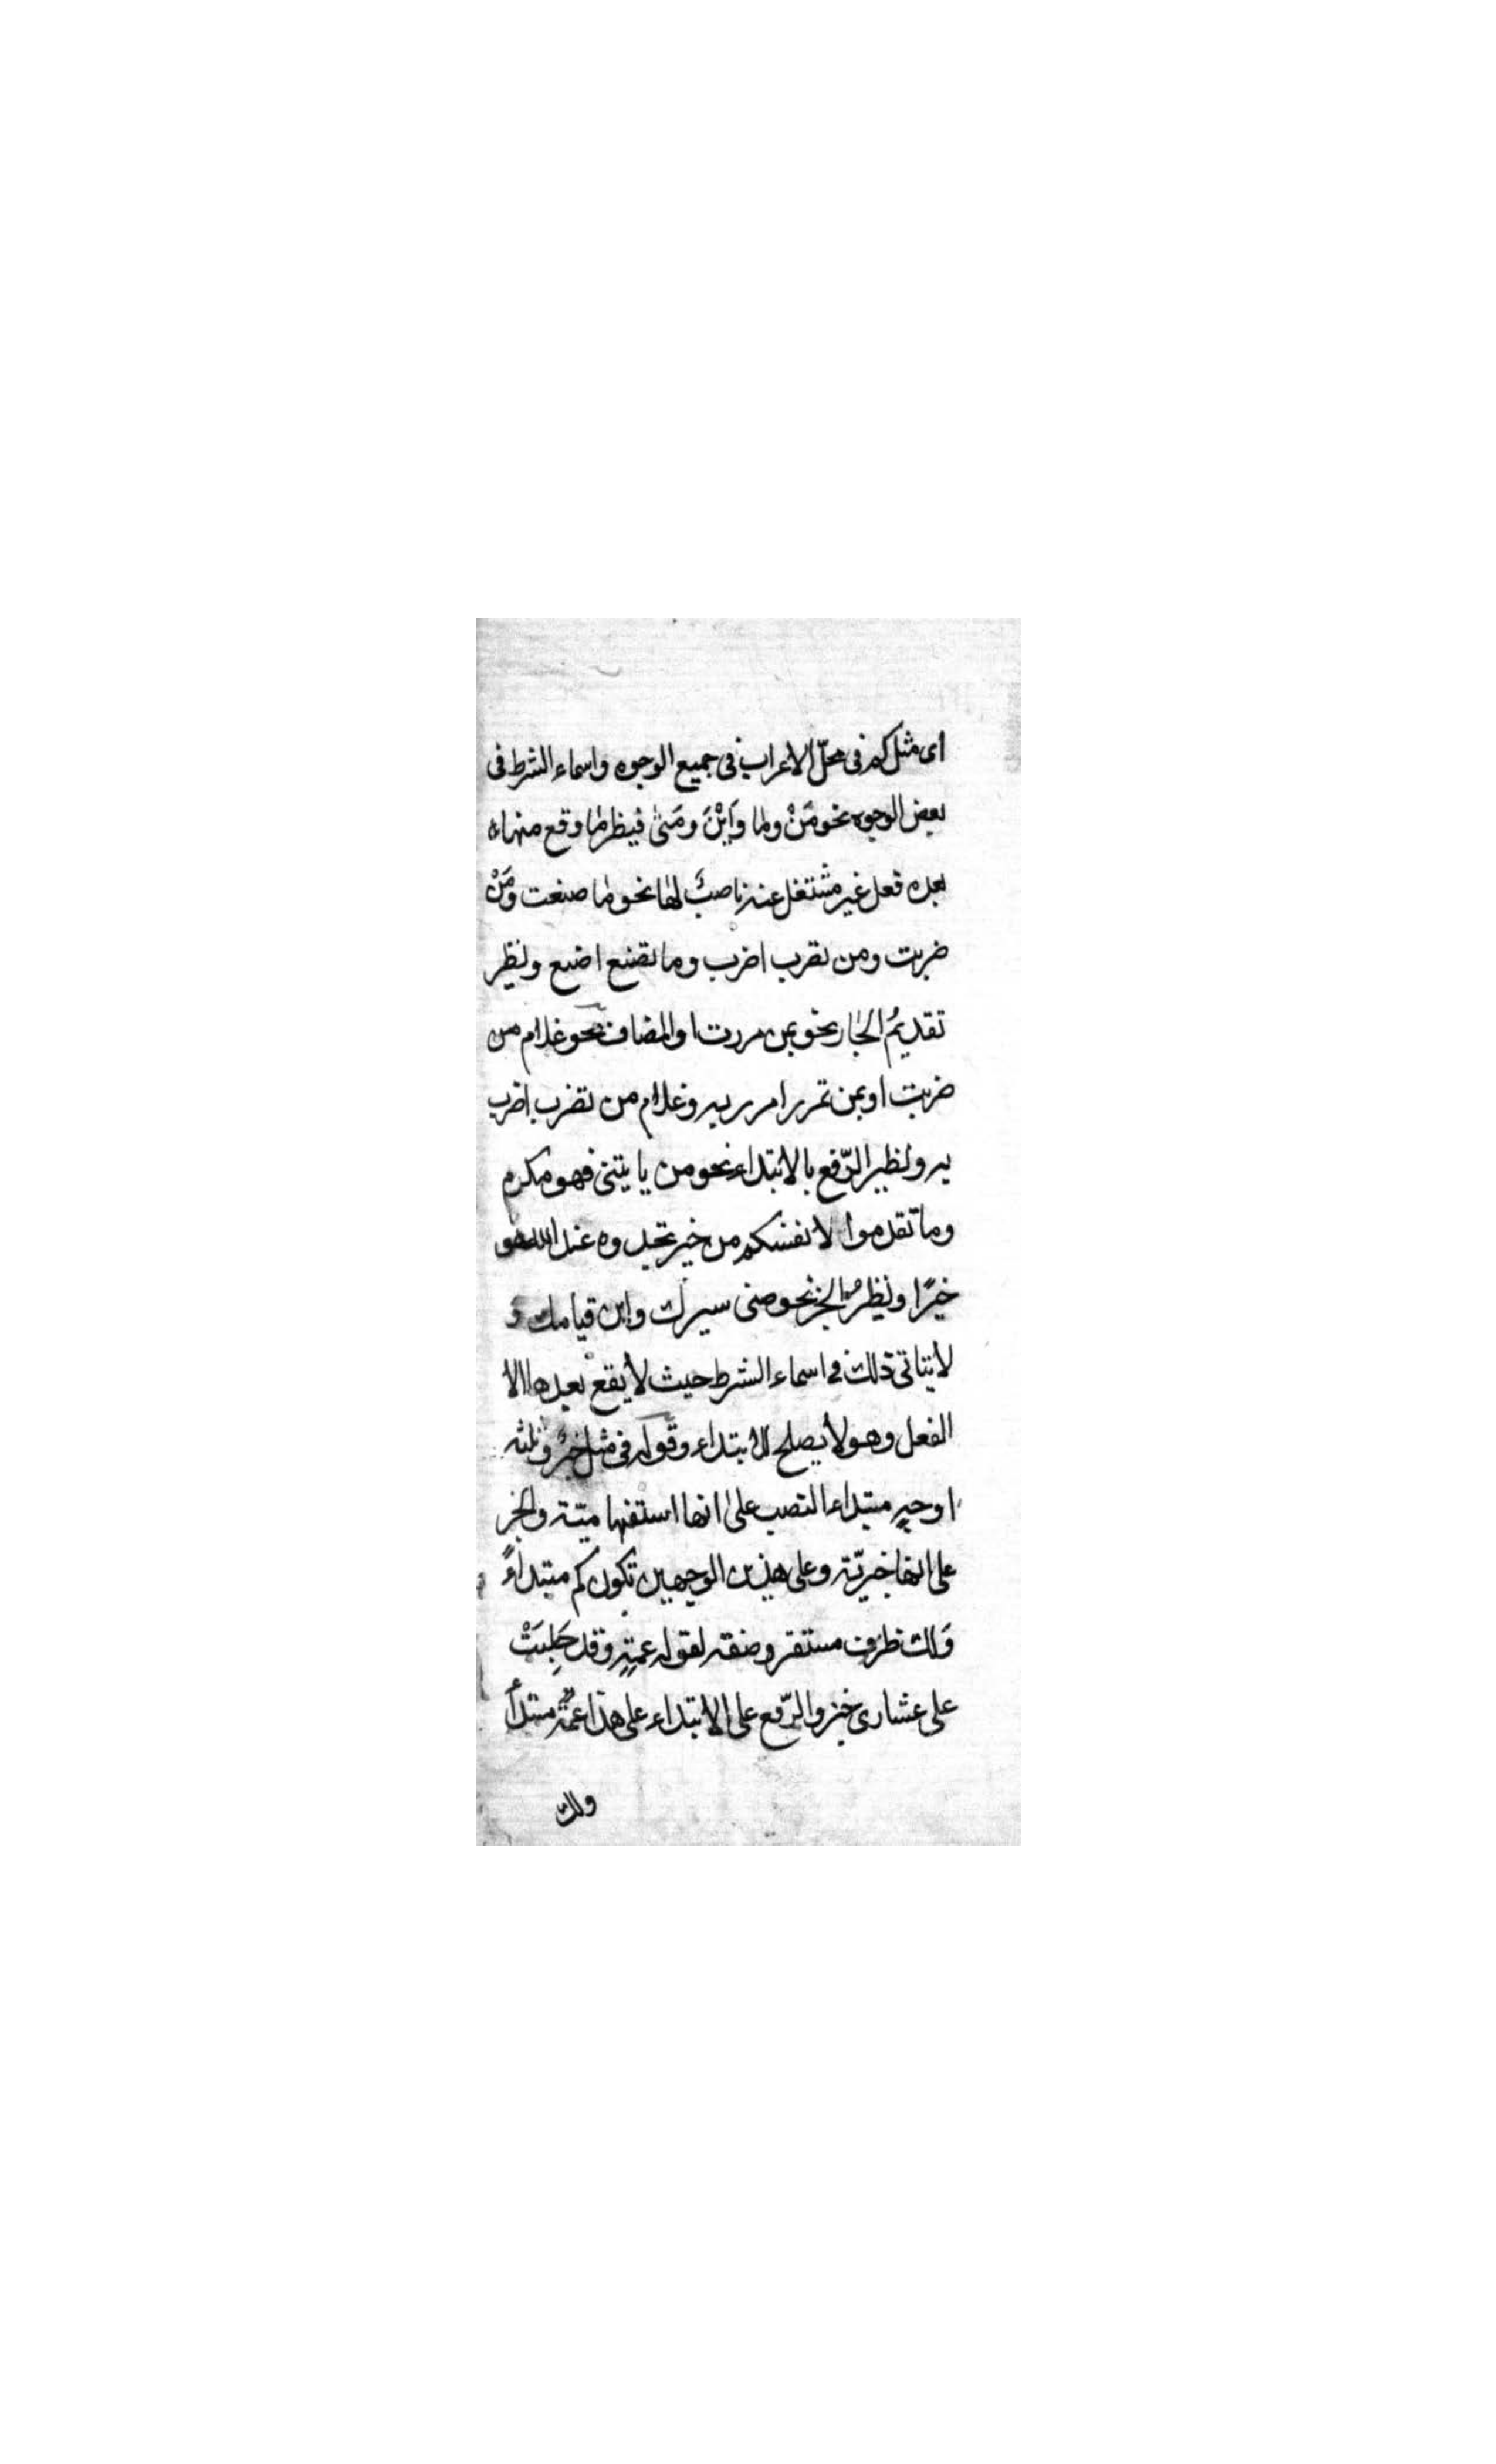 اى مثل كم فى محلّ الاعراب فى جميع الوجوه واسماء الشرط فى
بعض الوجوه نحو مَنْ وما وَاَيْنَ ومَتىٰ فينظر ما وقع منها
بعده فعل غير مشتغل عنه ناصبٌ لها نحو ما صنعت ومَنْ
ضربت ومن تضرب اضرب وما تصنع اصنع ونظير
تقديمُ الجار نحو بمن مررت او المضاف نحو غلام من
ضربت او بمن تمرر امرر به وغلام من تضرب اضرب
به ونظير الرّفع بالابتداء نحو من ياتينى فهو مكرم
وما تقدموا لانفسكم من خير تجدوه عند الله هو
خيرًا ونظيرُ الخبر نحو متى سيرك واين قيامك و
لا يتاتى ذلك فى اسماء الشرط حيث لا يقع بعدها الا
الفعل وهو لا يصلح للابتداء وقوله فى مثل خبرٌ وثلثه
اوجهٍ مبتداء النصب على انها استفهاميّة والجر
على انها خبريّة وعلى هذين الوجهين تكون كم مبتداءً
وَلك ظرف مستقر وصفة لقوله عمةٍ وقد حَلِبَتْ
على عشارى خبر والرّفع على الابتداء على هذا عمةٌ مبتدأ
ولك